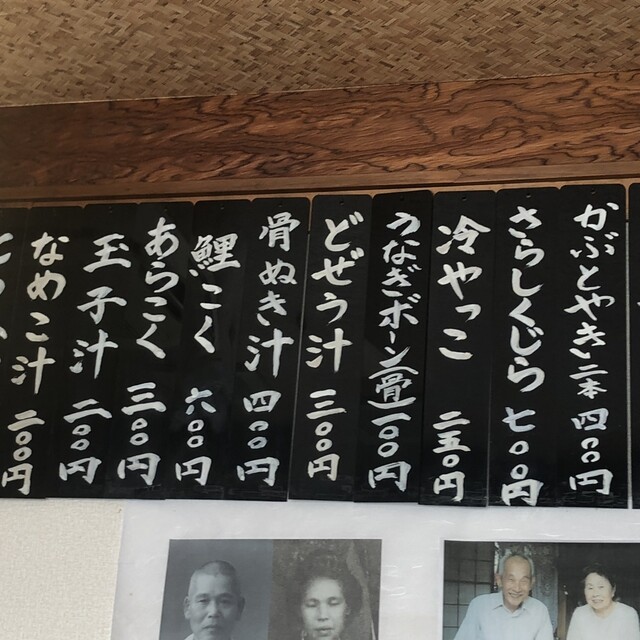 かぶとやき二本 四〇〇円
さらしくじら 七〇〇円
冷やっこ 二五〇円
うなぎボーン(骨)一〇〇円
どぜう汁 三〇〇円
骨ぬき汁 四〇〇円
鯉こく 六〇〇円
あらこく 三〇〇円
玉子汁 二〇〇円
なめこ汁 二〇〇円